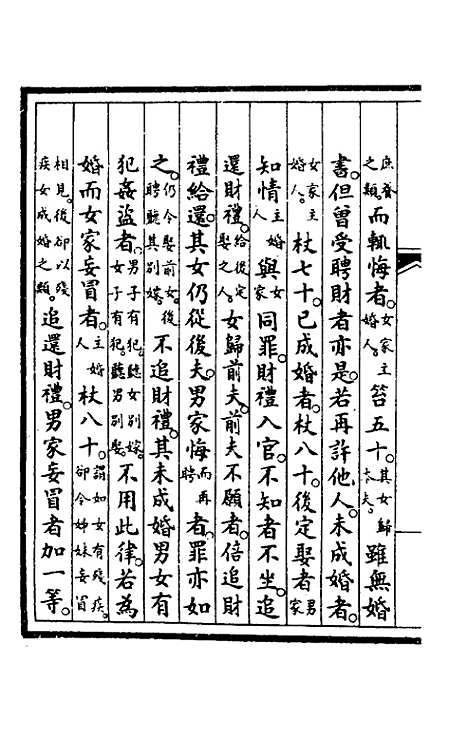 庶養之類。而輒悔者。女家主婚人。笞五十。其女歸本夫。雖無婚
書。但曾受聘財者亦是。若再許他人。未成婚者。
女家主婚人。杖七十。已成婚者。杖八十。後定娶者男家
知情主婚人與女家同罪。財禮入官。不知者不坐。追
還財禮。給後定娶之人。女歸前夫。前夫不願者。倍追財
禮給還。其女仍從後夫。男家悔而再聘者。罪亦如
之。仍令娶前女。後聘聽其別嫁。不追財禮。其未成婚男女有
犯姦盜者。男子有犯。聽女別嫁。女子有犯。聽男別娶。不用此律。若為
婚而女家妄冒者。主婚人杖八十。謂如女有殘疾。卻令姊妹妄冒
相見。後卻以殘疾女成婚之類。追還財禮。男家妄冒者加一等。